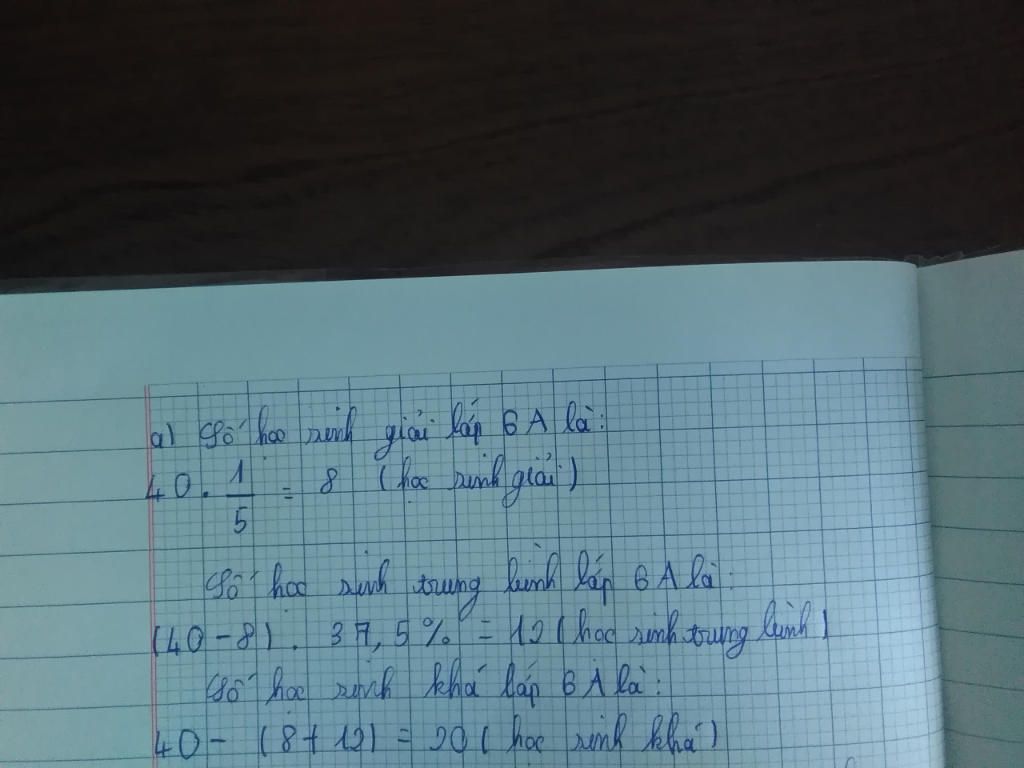 a) Số học sinh giỏi lớp 6A là:
40 . 1/5 = 8 (học sinh giỏi)
Số học sinh trung bình lớp 6A là:
(40 - 8) . 37,5% = 12 (học sinh trung bình)
Số học sinh khá lớp 6A là:
40 - (8 + 12) = 20 (học sinh khá)